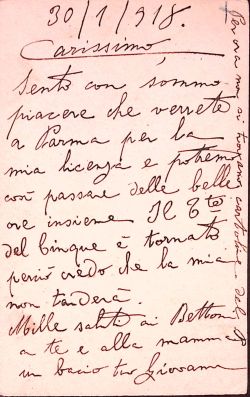 30/1/918.
Carissimo,
Sento con sommo
piacere che verrete
a Parma per la
mia licenza e potremo
così passare delle belle
ore insieme Il 6te
del Cinque è tornato
perciò credo che la mia
non tarderà.
Mille saluti ai Bettoni
a te e alla mamma
un bacio tuo Giovanni
Per ora non si trovano cartoline del